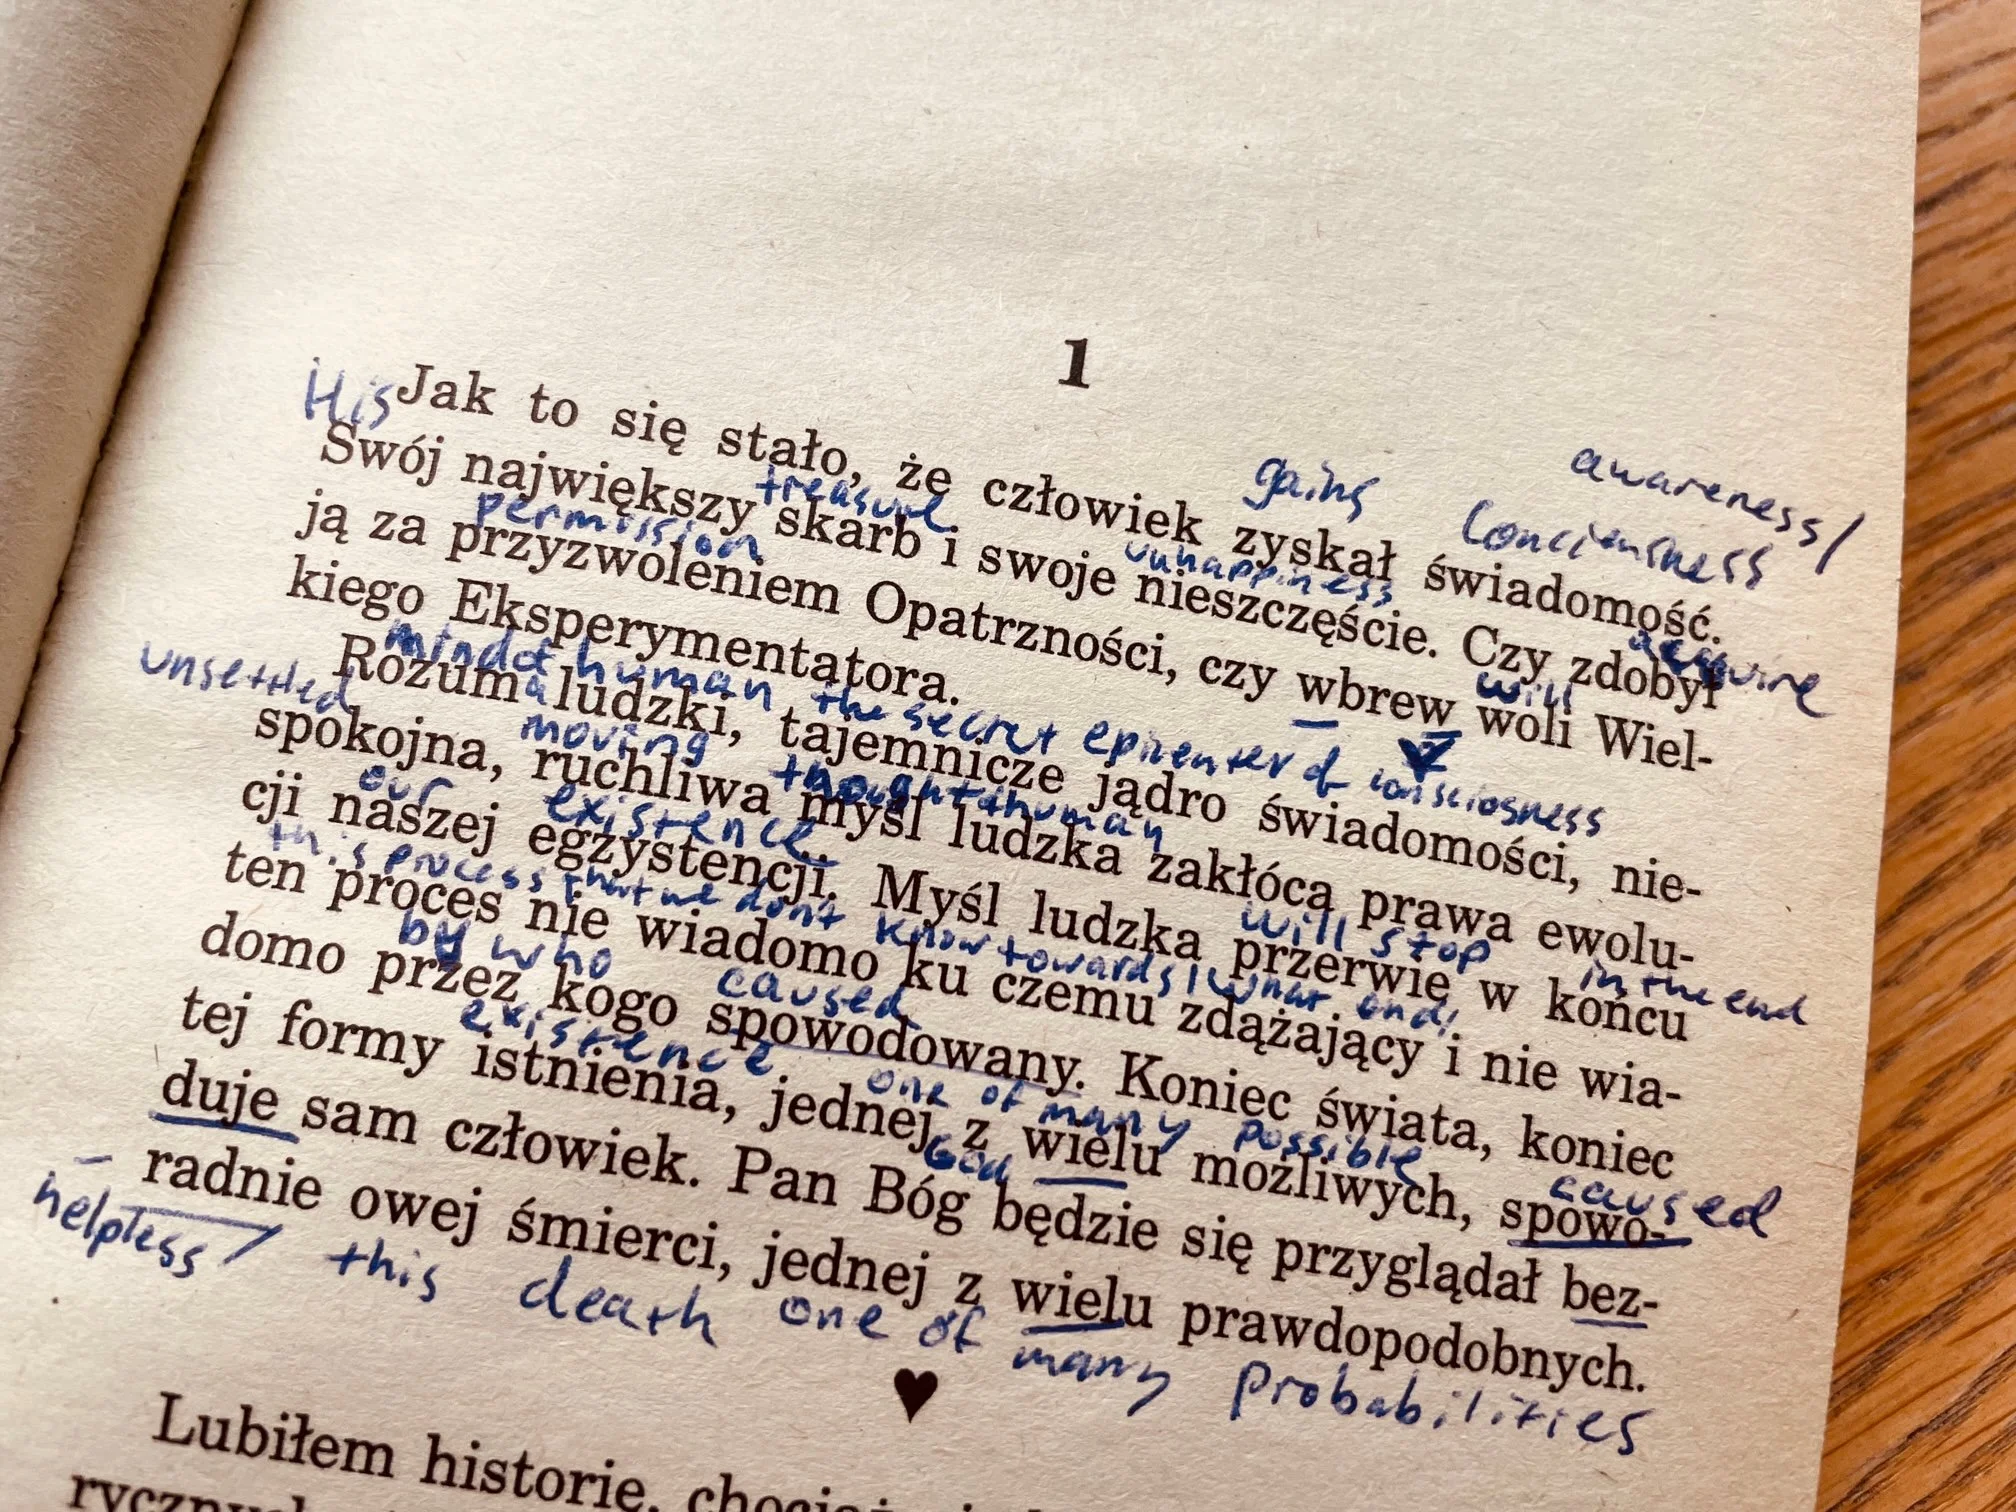 1
His
Jak to się stało, że człowiek zyskał świadomość.
gains
awareness/
treasure
Swój największy skarb i swoje nieszczęście. Czy zdobył
permission
unhappiness
acquire
ją za przyzwoleniem Opatrzności, czy wbrew woli Wiel-
will
kiego Eksperymentatora.
mind of human the secret epicenter of consciosness
Rozum ludzki, tajemnicze jądro świadomości, nie-
unsettled
moving
thought human
spokojna, ruchliwa myśl ludzka zakłóca prawa ewolu-
our existence
cji naszej egzystencji. Myśl ludzka przerwie w końcu
will stop in the end
this process that we don't know towards what end/
ten proces nie wiadomo ku czemu zdążający i nie wia-
by who caused
domo przez kogo spowodowany. Koniec świata, koniec
existence
one of many possible
caused
tej formy istnienia, jednej z wielu możliwych, spowo-
God
duje sam człowiek. Pan Bóg będzie się przyglądał bez-
radnie owej śmierci, jednej z wielu prawdopodobnych.
helpless/ this death one of many probabilities
♥
Lubiłem historię,